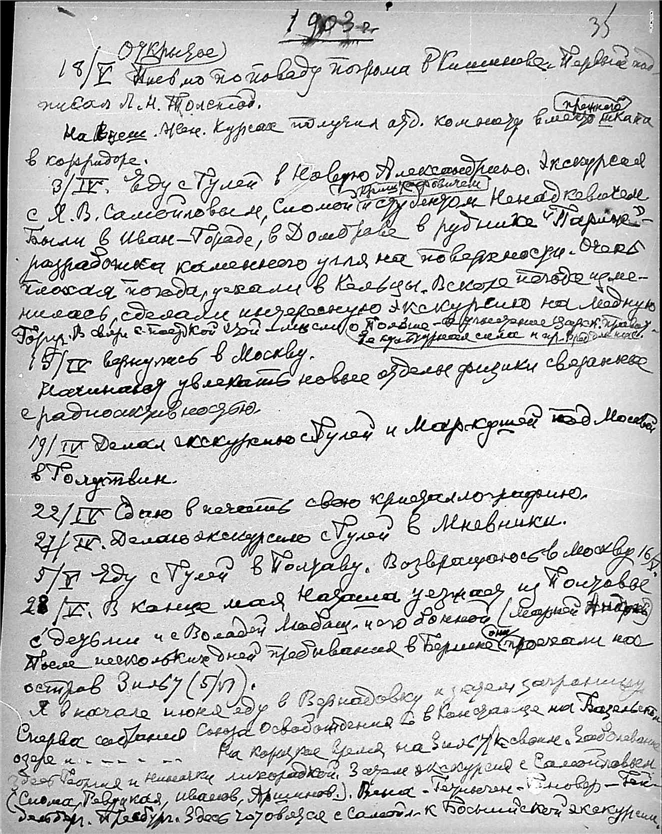 1903 г.
35
Открытое
18/V Письмо по поводу погрома в Кишиневе. Первый под-
писал Л. Н. Толстой.
На Высш. Жен. Курсах получил отд. комнату вместо шкапа
прежнего
в корридоре.
3/IV. Еду с Гулей в Новую Александрию. Экскурсия
с Я. В. Самойловым, Сиомой и студентом Ненадкевичем
Были в Иван-Городе, в Домброве в руднике "Париж"-
разработка каменного угля на поверхности. Очень
плохая погода, уехали в Кельцы. Вскоре погода изме-
нилась, сделали интересную экскурсию на Медную
Гору. В связи с поездкой мысли о Польше
культурная сила и пр.
15/IV вернулись в Москву.
Начинают увлекать новые отделы физики связанные
с радиоактивностью.
19/IV Делал экскурсию с Гулей и Маркушей под Москвой
в Голутвин.
22/IV Сдаю в печать свою кристаллографию.
27/IV. Делаю экскурсию с Гулей в Мневники.
5/V Еду с Гулей в Полтаву. Возвращаюсь в Москву 16/V.
28/V. В конце мая Наташа уезжая из Полтавы
с детьми и с Володей и его бонной (Марией
После нескольких дней пребывания в Берлине они проехали на
остров Зильт (5/VI).
Я в начале июня еду в Вернадовку и затем заграницу
Сперва собрания Союза Освобождения в Констанце на Базельском
озере и - - - - - - На короткое время на Зильт к своим. Заболевание
здесь Георгия и Ниночки лихорадкой. Затем экскурсия с Самойловым
(Сиома, Ревуцкая, Иванов, Аршинов). Вена - Гетинген - Ганновер - Гей-
дельберг. Пресбург. Здесь готовятся с Самойл. к Боснийской экскурсии